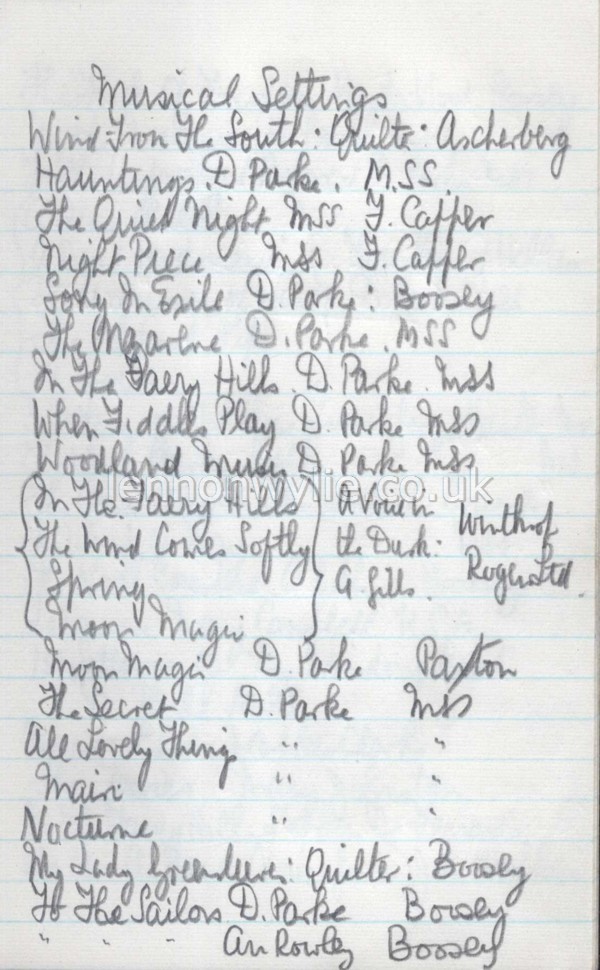 Musical Settings
Wind From The South : Quilter : Ascherberg
Hauntings . D Parke . M.SS.
The Quiet Night MSS F. Capper
Night Piece MSS F. Capper
Song In Exile D. Parke : Boosey
The Nazarene D. Parke . MSS
In The Faery Hills . D. Parke . MSS
When Fiddles Play D. Parke MSS
Woodland Music D Parke MSS
lennonwylie.co.uk
In The Faery Hills
The Wind Comes Softly
Spring
Moon Magic
A Voice in
the Dusk :
A. Gills.
Winthrop
Rogers Ltd.
Moon Magic D. Parke Paxton
The Secret D. Parke MSS
All Lovely Things " "
Mairi " "
Nocturne " "
My Lady Greensleeves : Quilter : Boosey
The Sailors D. Parke Boosey
" " " Rowley Boosey